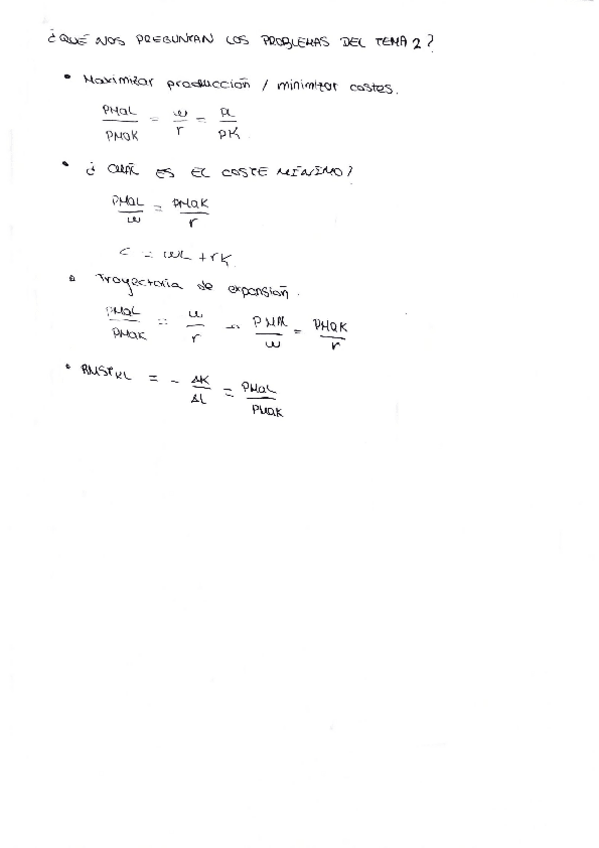 ¿QUÉ NOS PREGUNTAN LOS PROBLEMAS DEL TEMA 2?
• Maximizar producción / minimizar costes.
PMaL / PMaK = w / r = PL / PK
• ¿CUÁL ES EL COSTE MÍNIMO?
PMaL / w = PMaK / r
C = wL + rK
• Trayectoria de expansión.
PMaL / PMaK = w / r → PMaL / w = PMaK / r
• RMSTKL = - ΔK / ΔL = PMaL / PMaK